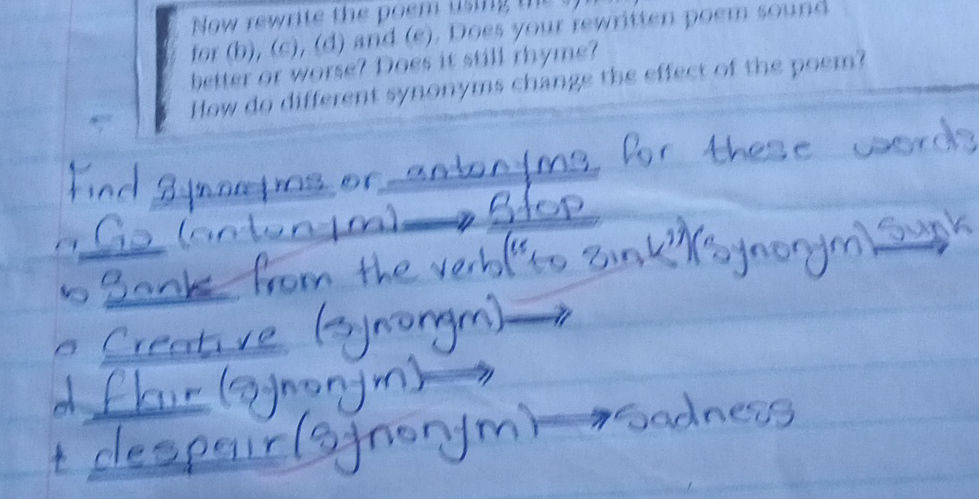 Now rewrite the poem using the
for (b), (c), (d) and (e). Does your rewritten poem sound
better or worse? Does it still rhyme?
How do different synonyms change the effect of the poem?
Find synonyms or antonyms for these words
a Go (antonym) → Stop
b Sank from the verb ("to sink") (synonym) Sunk
c Creative (synonym) →
d flair (synonym) →
e despair (synonym) → sadness